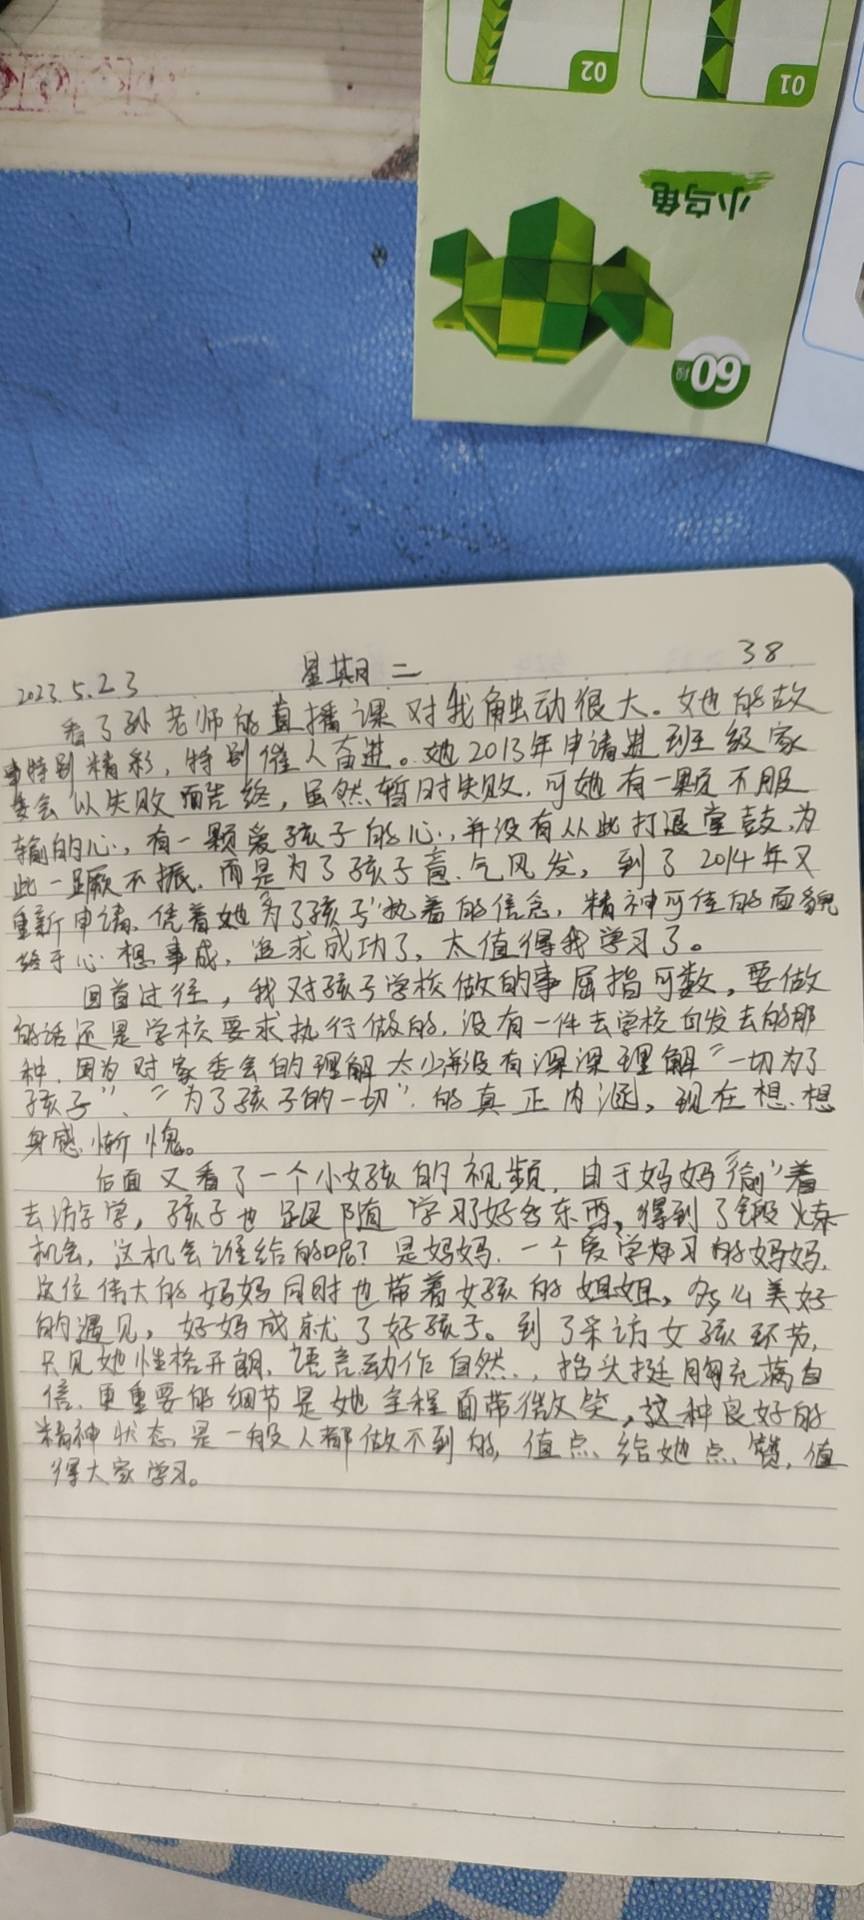 02
01
小乌龟
60段
2023.5.23
星期二
38
看了孙老师的直播课对我触动很大。她的故
事特别精彩,特别催人奋进。她2013年申请进班级家
委会以失败而告终,虽然暂时失败,可她有一颗不服
输的心,有一颗爱孩子的心,并没有从此打退堂鼓,为
此一蹶不振,而是为了孩子意气风发,到了2014年又
重新申请,凭着她“为了孩子”执着的信念,精神可佳的面貌
终于心想事成,追求成功了,太值得我学习了。
回首过往,我对孩子学校做的事屈指可数,要做
的话还是学校要求执行做的,没有一件去学校自发去的那
种,因为对家委会的理解太少,并没有深深理解“一切为了
孩子”、“为了孩子的一切”的真正内涵,现在想想
身感惭愧。
后面又看了一个小女孩的视频,由于妈妈“偷”着
去游学,孩子也跟随学习好多东西,得到了锻炼
机会,这机会谁给的呢?是妈妈,一个爱学习的妈妈,
这位伟大的妈妈同时也带着女孩的姐姐,多么美好
的遇见,好妈成就了好孩子。到了采访女孩环节,
只见她性格开朗,语言动作自然,,抬头挺胸充满自
信,更重要的细节是她全程面带微笑,这种良好的
精神状态是一般人都做不到的,值点给她点赞,值
得大家学习。